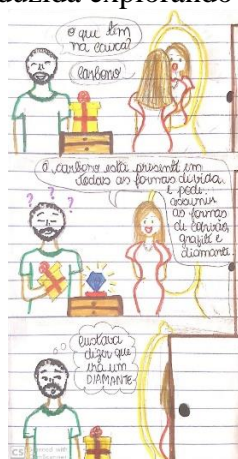 duzida explorando
O que tem
na caixa?
Carbono
O carbono está presente em
todas as formas de vida
e pode
assumir
as formas
de carvão,
grafite e
diamante.
? ? ?
Custava
dizer que
era um
DIAMANTE
CS